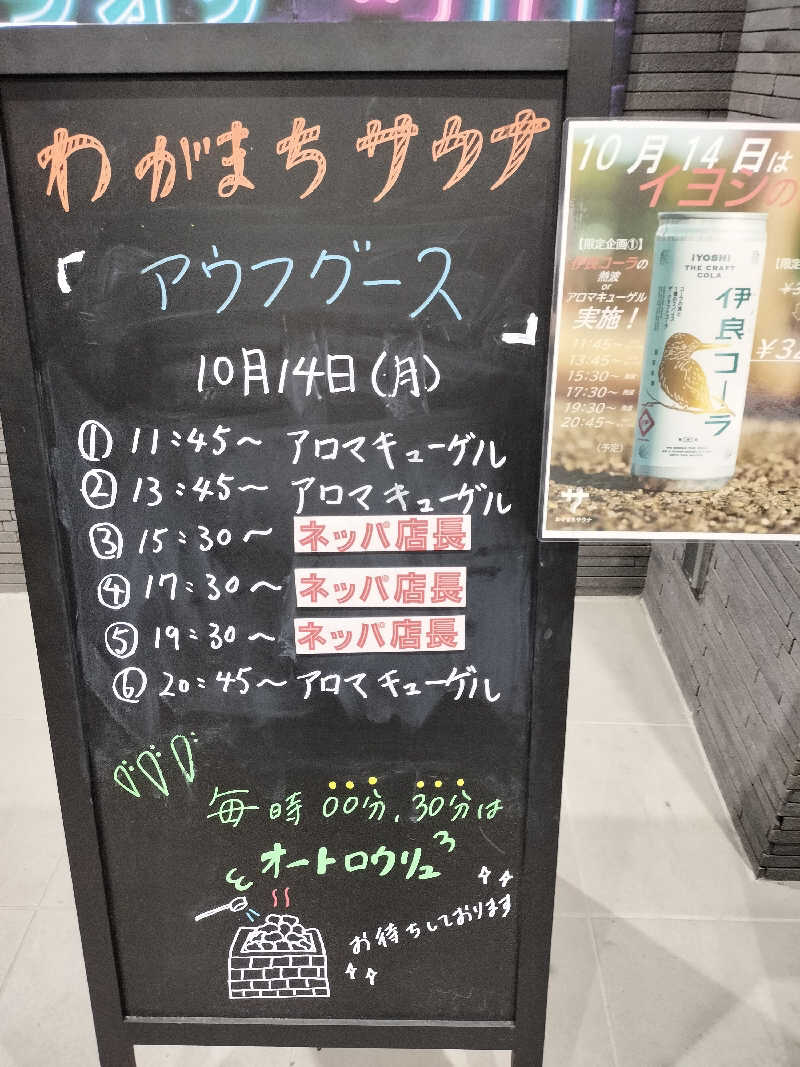 わがまちサウナ
「アウフグース」
10月14日(月)
① 11:45〜 アロマキューゲル
② 13:45〜 アロマキューゲル
③ 15:30〜 ネッパ店長
④ 17:30〜 ネッパ店長
⑤ 19:30〜 ネッパ店長
⑥ 20:45〜 アロマキューゲル
毎時00分、30分は
オートロウリュ
お待ちしております
10月14日は
イヨシの
【限定企画①】
伊良コーラの
熱波
or
アロマキューゲル
実施!
11:45〜
13:45〜
15:30〜
17:30〜
19:30〜
20:45〜
(予定)
IYOSHI
THE CRAFT
COLA
伊良コーラ
【限
¥32
サ
わがまちサウナ